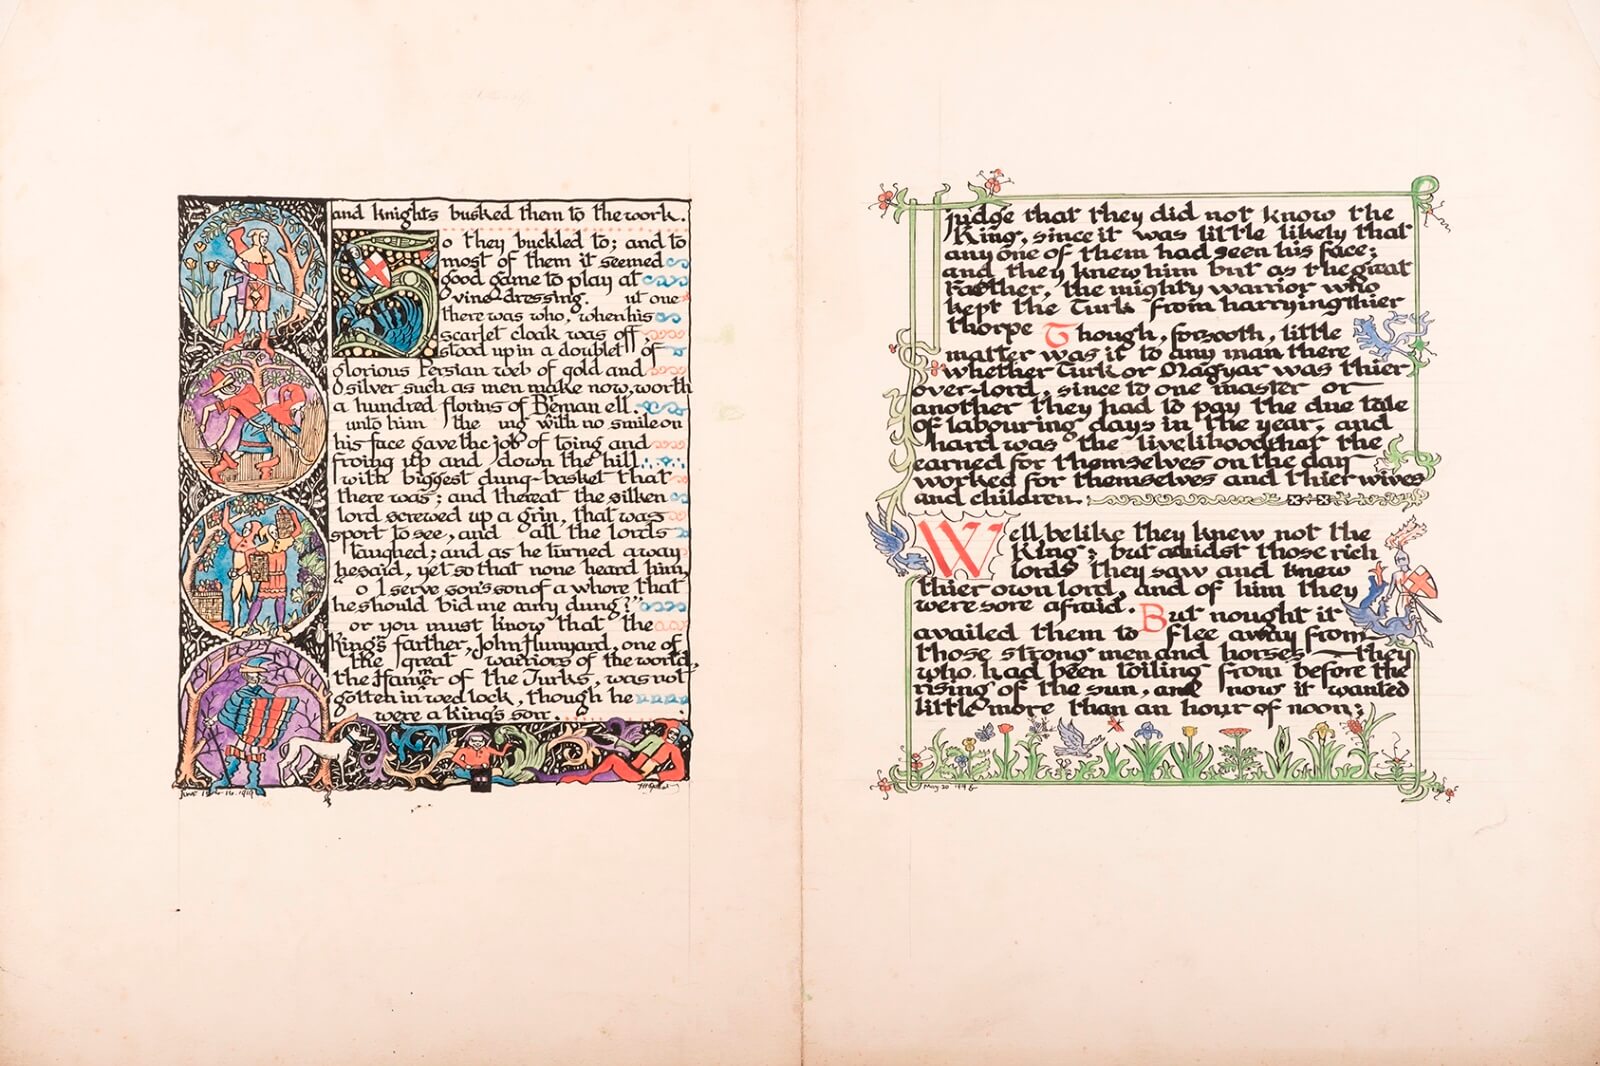 and knights busked them to the work.
o they buckled to; and to
most of them it seemed
good game to play at
vine-dressing. ut one
there was who, when his
scarlet cloak was off,
stood up in a doublet of
glorious Persian web of gold and
silver such as men make now, worth
a hundred florins of Beman ell.
unto him the ing with no smile on
his face gave the job of toing and
froing up and down the hill
with biggest dung-basket that
there was; and thereat the silken
lord screwed up a grin, that was
sport to see, and all the lords
laughed; and as he turned away
he said, yet so that none heard him,
o I serve son's son of a whore that
he should bid me carry dung?"
or you must know that the
King's farther, John Hunyard, one of
the great warriors of the world,
the Hamer of the Turks, was not
gotten in wed lock, though he
were a king's son.
June 16 1919
judge that they did not know the
King, since it was little likely that
any one of them had seen his face;
and they knew him but as the great
Father, the mighty warrior who
kept the Turk from harrying thier
thorpe Though, forsooth, little
matter was it to any man there
whether Turk or Magyar was thier
over-lord, since to one master or
another they had to pay the due tale
of labouring days in the year, and
hard was the livelihood that the
earned for themselves on the day
worked for themselves and thier wives
and children.
Well belike they knew not the
King; but amidst those rich
lords they saw and knew
thier own lord, and of him they
were sore afraid. But nought it
availed them to flee away from
those strong men and horses — they
who had been toiling from before the
rising of the sun, and now it wanted
little more than an hour of noon;
May 20